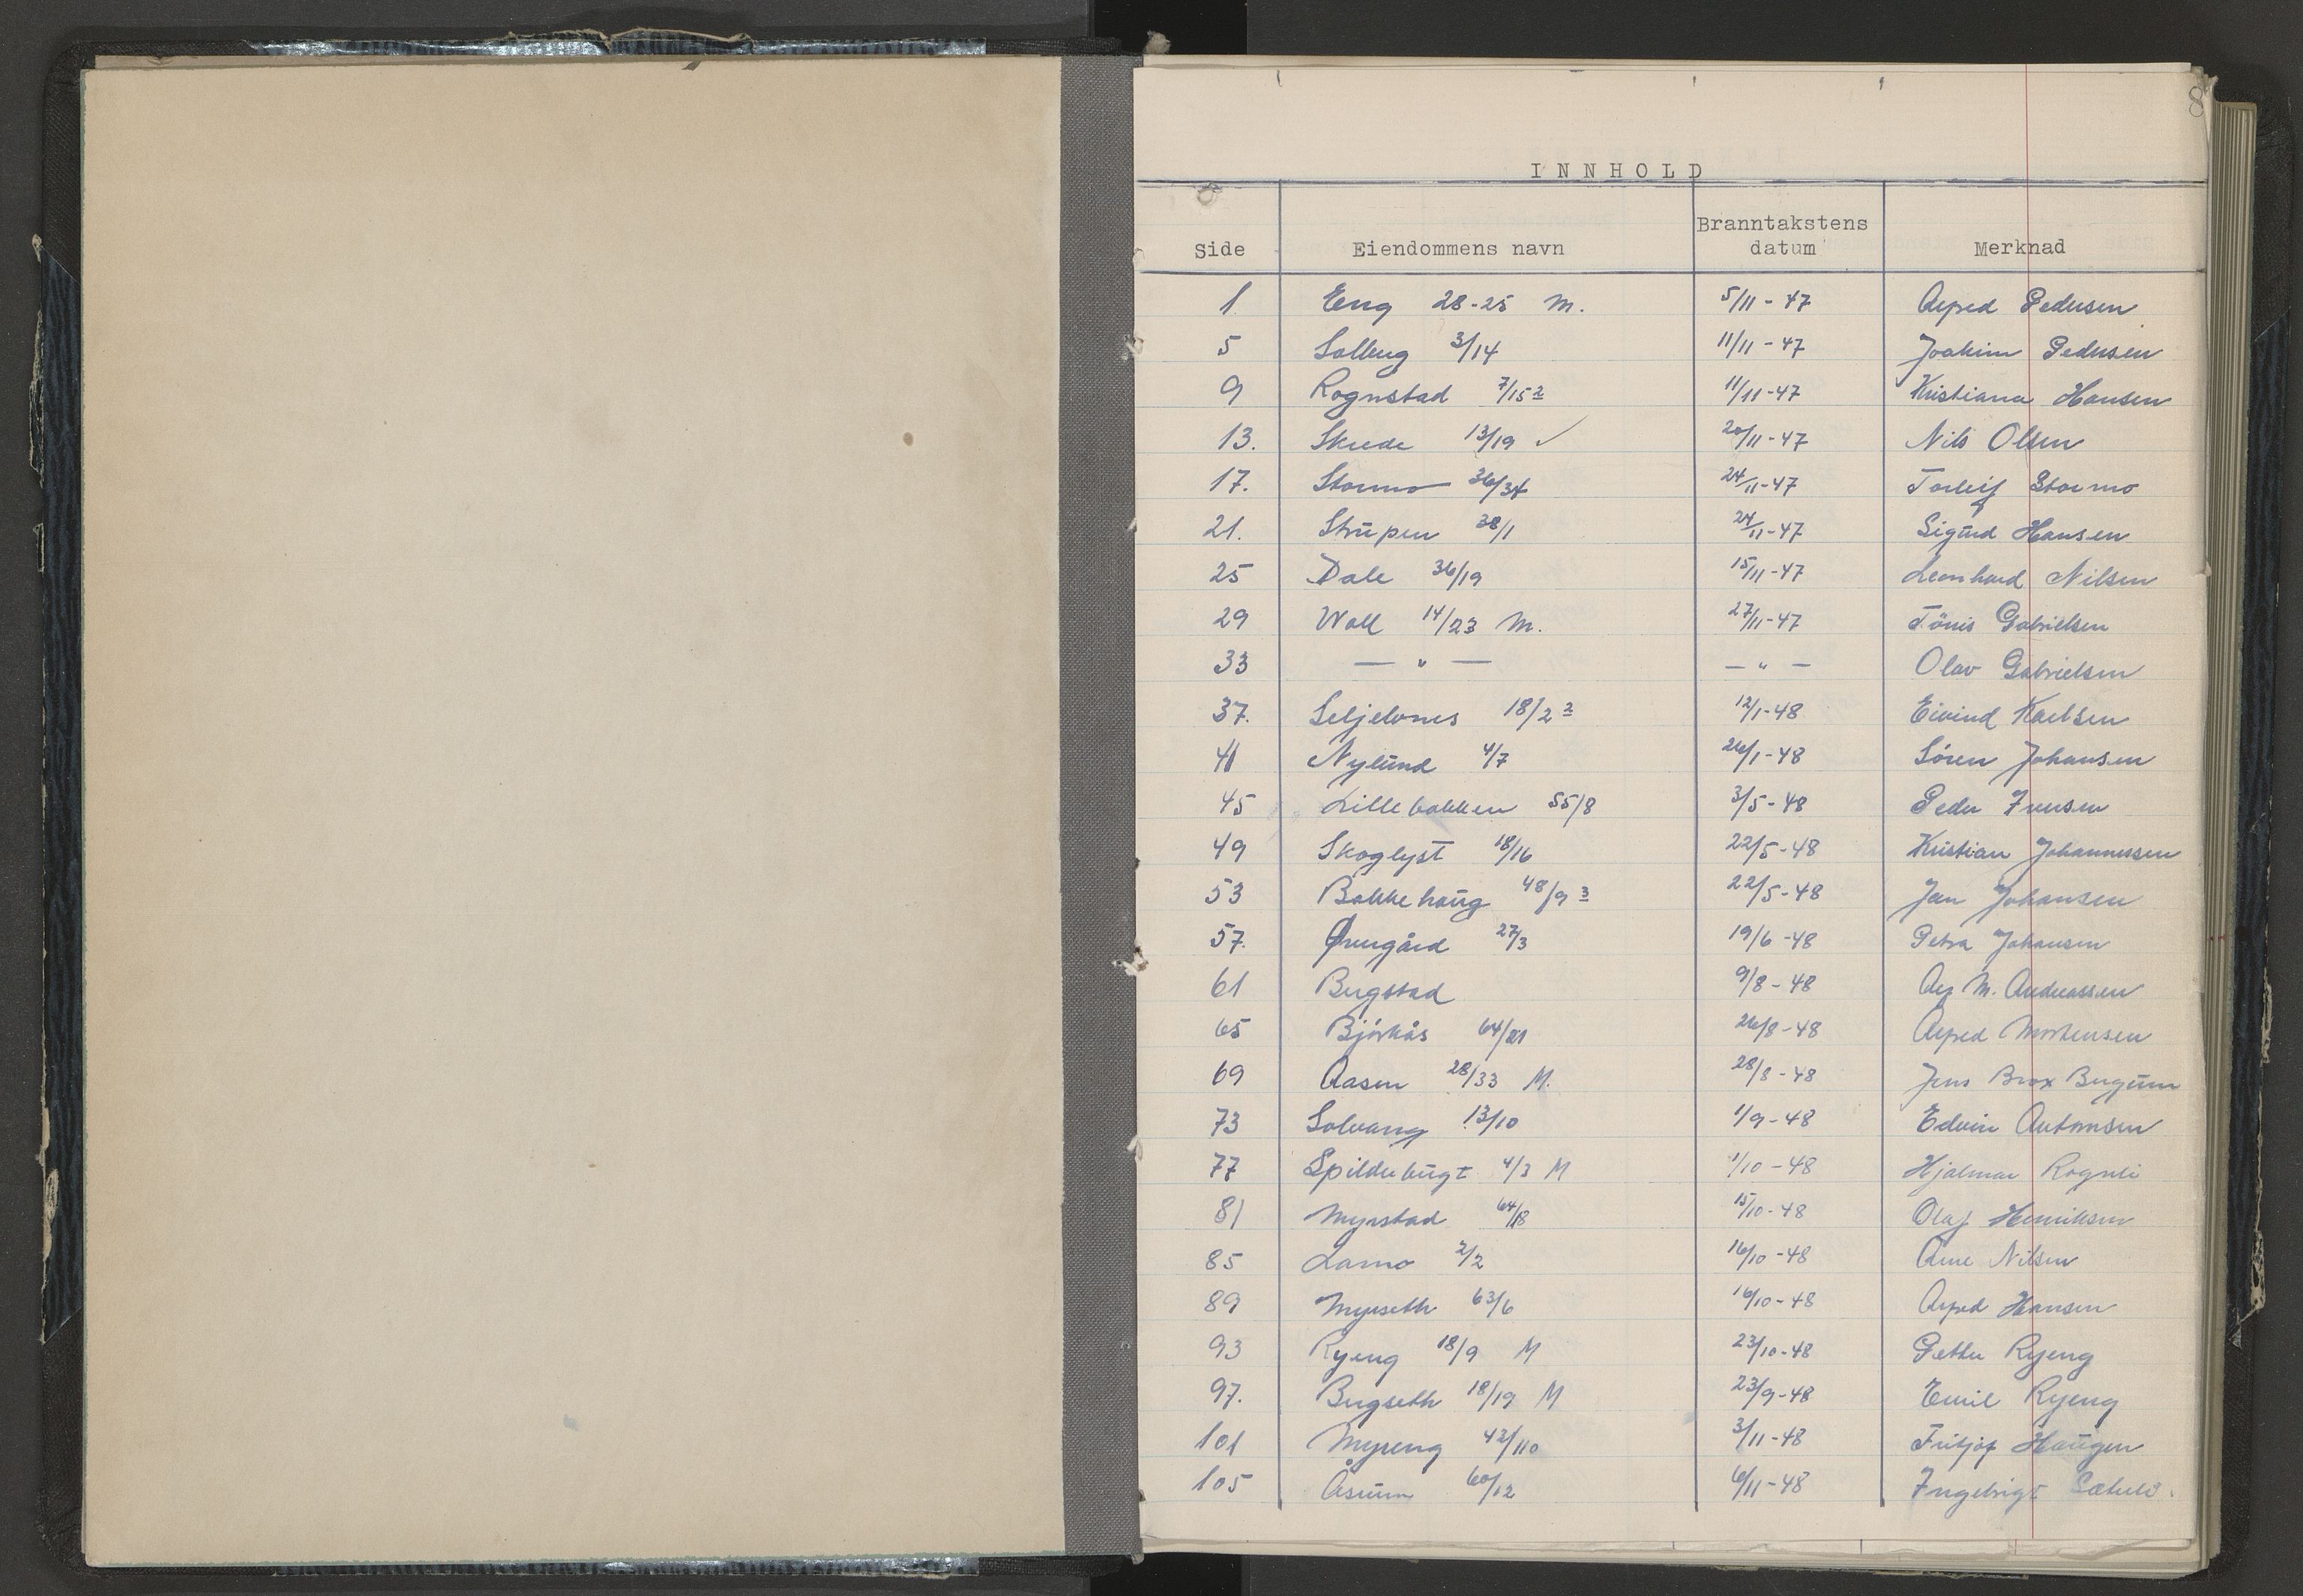 8
INNHOLD
Side Eiendommens navn Branntakstens datum Merknad
1 Eng 28-25 M. 5/11-47 Alfred Pedersen
5 Solberg 3/14 11/11-47 Joakim Pedersen
9 Rognstad 7/15 2 11/11-47 Kristiana Hansen
13. Skrede 13/19 ✓ 20/11-47 Nils Olsen
17. Stormo 36/34 24/11-47 Torleif Stormo
21. Strupen 38/1 24/11-47 Sigurd Hansen
25 Dale 36/19 15/11-47 Leonhard Nilsen
29 Woll 14/23 M. 27/11-47 Tönis Gabrielsen
33 — " — — " — Olav Gabrielsen
37. Seljelvnes 18/2 2 12/1-48 Eivind Karlsen
41 Nylund 4/7 26/1-48 Sören Johansen
45 Lillebakken 55/8 3/5-48 Peder Iversen
49 Skoglyst 18/16 22/5-48 Kristian Johannessen
53 Bakkehaug 48/9 3 22/5-48 Jan Johansen
57. Øvergård 27/3 19/6-48 Petra Johansen
61 Bergstad 9/8-48 M. Andreassen
65 Björkås 64/21 26/8-48 Alfred Mortensen
69 Aasen 28/33 M. 28/8-48 Jens Brox Bergum
73 Solvang 13/10 1/9-48 Edvin Antonsen
77 Spilderbugt 4/3 M 1/10-48 Hjalmar Rognli
81 Myrstad 64/18 15/10-48 Olaf Henriksen
85 Lamo 2/2 16/10-48 Arne Nilsen
89 Myrseth 63/6 16/10-48 Alfred Hansen
93 Ryeng 18/9 M 23/10-48 Petter Ryeng
97. Bergseth 18/19 M 23/9-48 Emil Ryeng
101 Myreng 42/110 3/11-48 Fritjof Haugen
105 Åsum 60/12 6/11-48 Ingebrigt